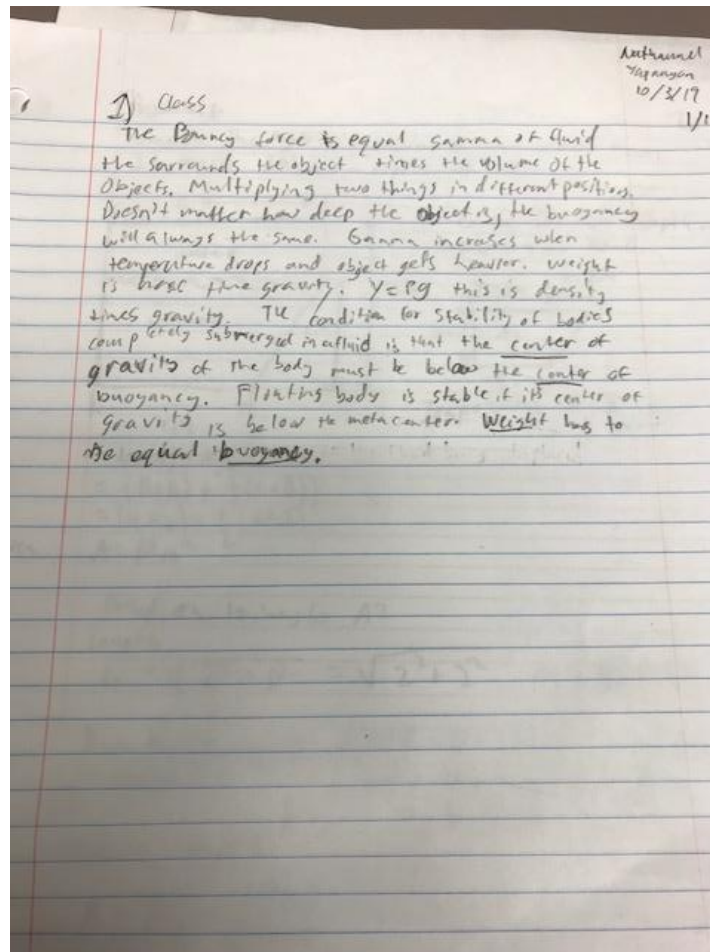 10/3/19
1/1
1) Class
The Bouncy force is equal gamma of fluid
the sarrounds the object times the volume of the
Objects. Multiplying two things in different position.
Doesn't matter how deep the object is, the buoyancy
will always the same. Gamma increases when
temperature drops and object gets heavier. weight
is time gravity. γ=ρg this is density
times gravity. The condition for stability of bodies
completely submerged in a fluid is that the center of
gravity of the body must be below the center of
buoyancy. Floating body is stable if its center of
gravity is below the metacenter. Weight has to
be equal buoyancy.